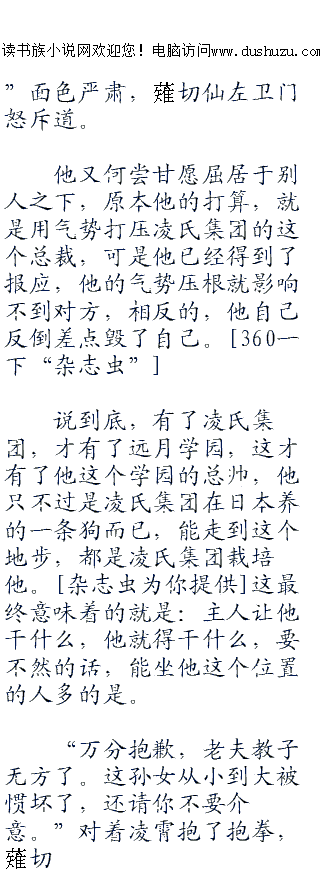 读书族小说网欢迎您！电脑访问www.dushuzu.com
”面色严肃，薙切仙左卫门
怒斥道。
他又何尝甘愿屈居于别
人之下，原本他的打算，就
是用气势打压凌氏集团的这
个总裁，可是他已经得到了
报应，他的气势压根就影响
不到对方，相反的，他自己
反倒差点毁了自己。[360一
下“杂志虫”]
说到底，有了凌氏集
团，才有了远月学园，这才
有了他这个学园的总帅，他
只不过是凌氏集团在日本养
的一条狗而已，能走到这个
地步，都是凌氏集团栽培
他。[杂志虫为你提供]这最
终意味着的就是：主人让他
干什么，他就得干什么，要
不然的话，能坐他这个位置
的人多的是。
“万分抱歉，老夫教子
无方了。这孙女从小到大被
惯坏了，还请你不要介
意。”对着凌霄抱了抱拳，
薙切